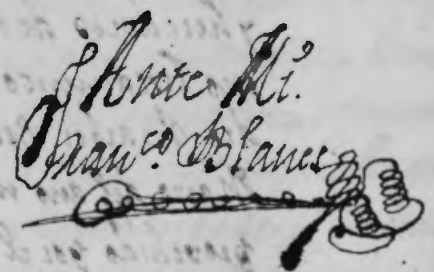 Ante Mi.
Franco. Blanes